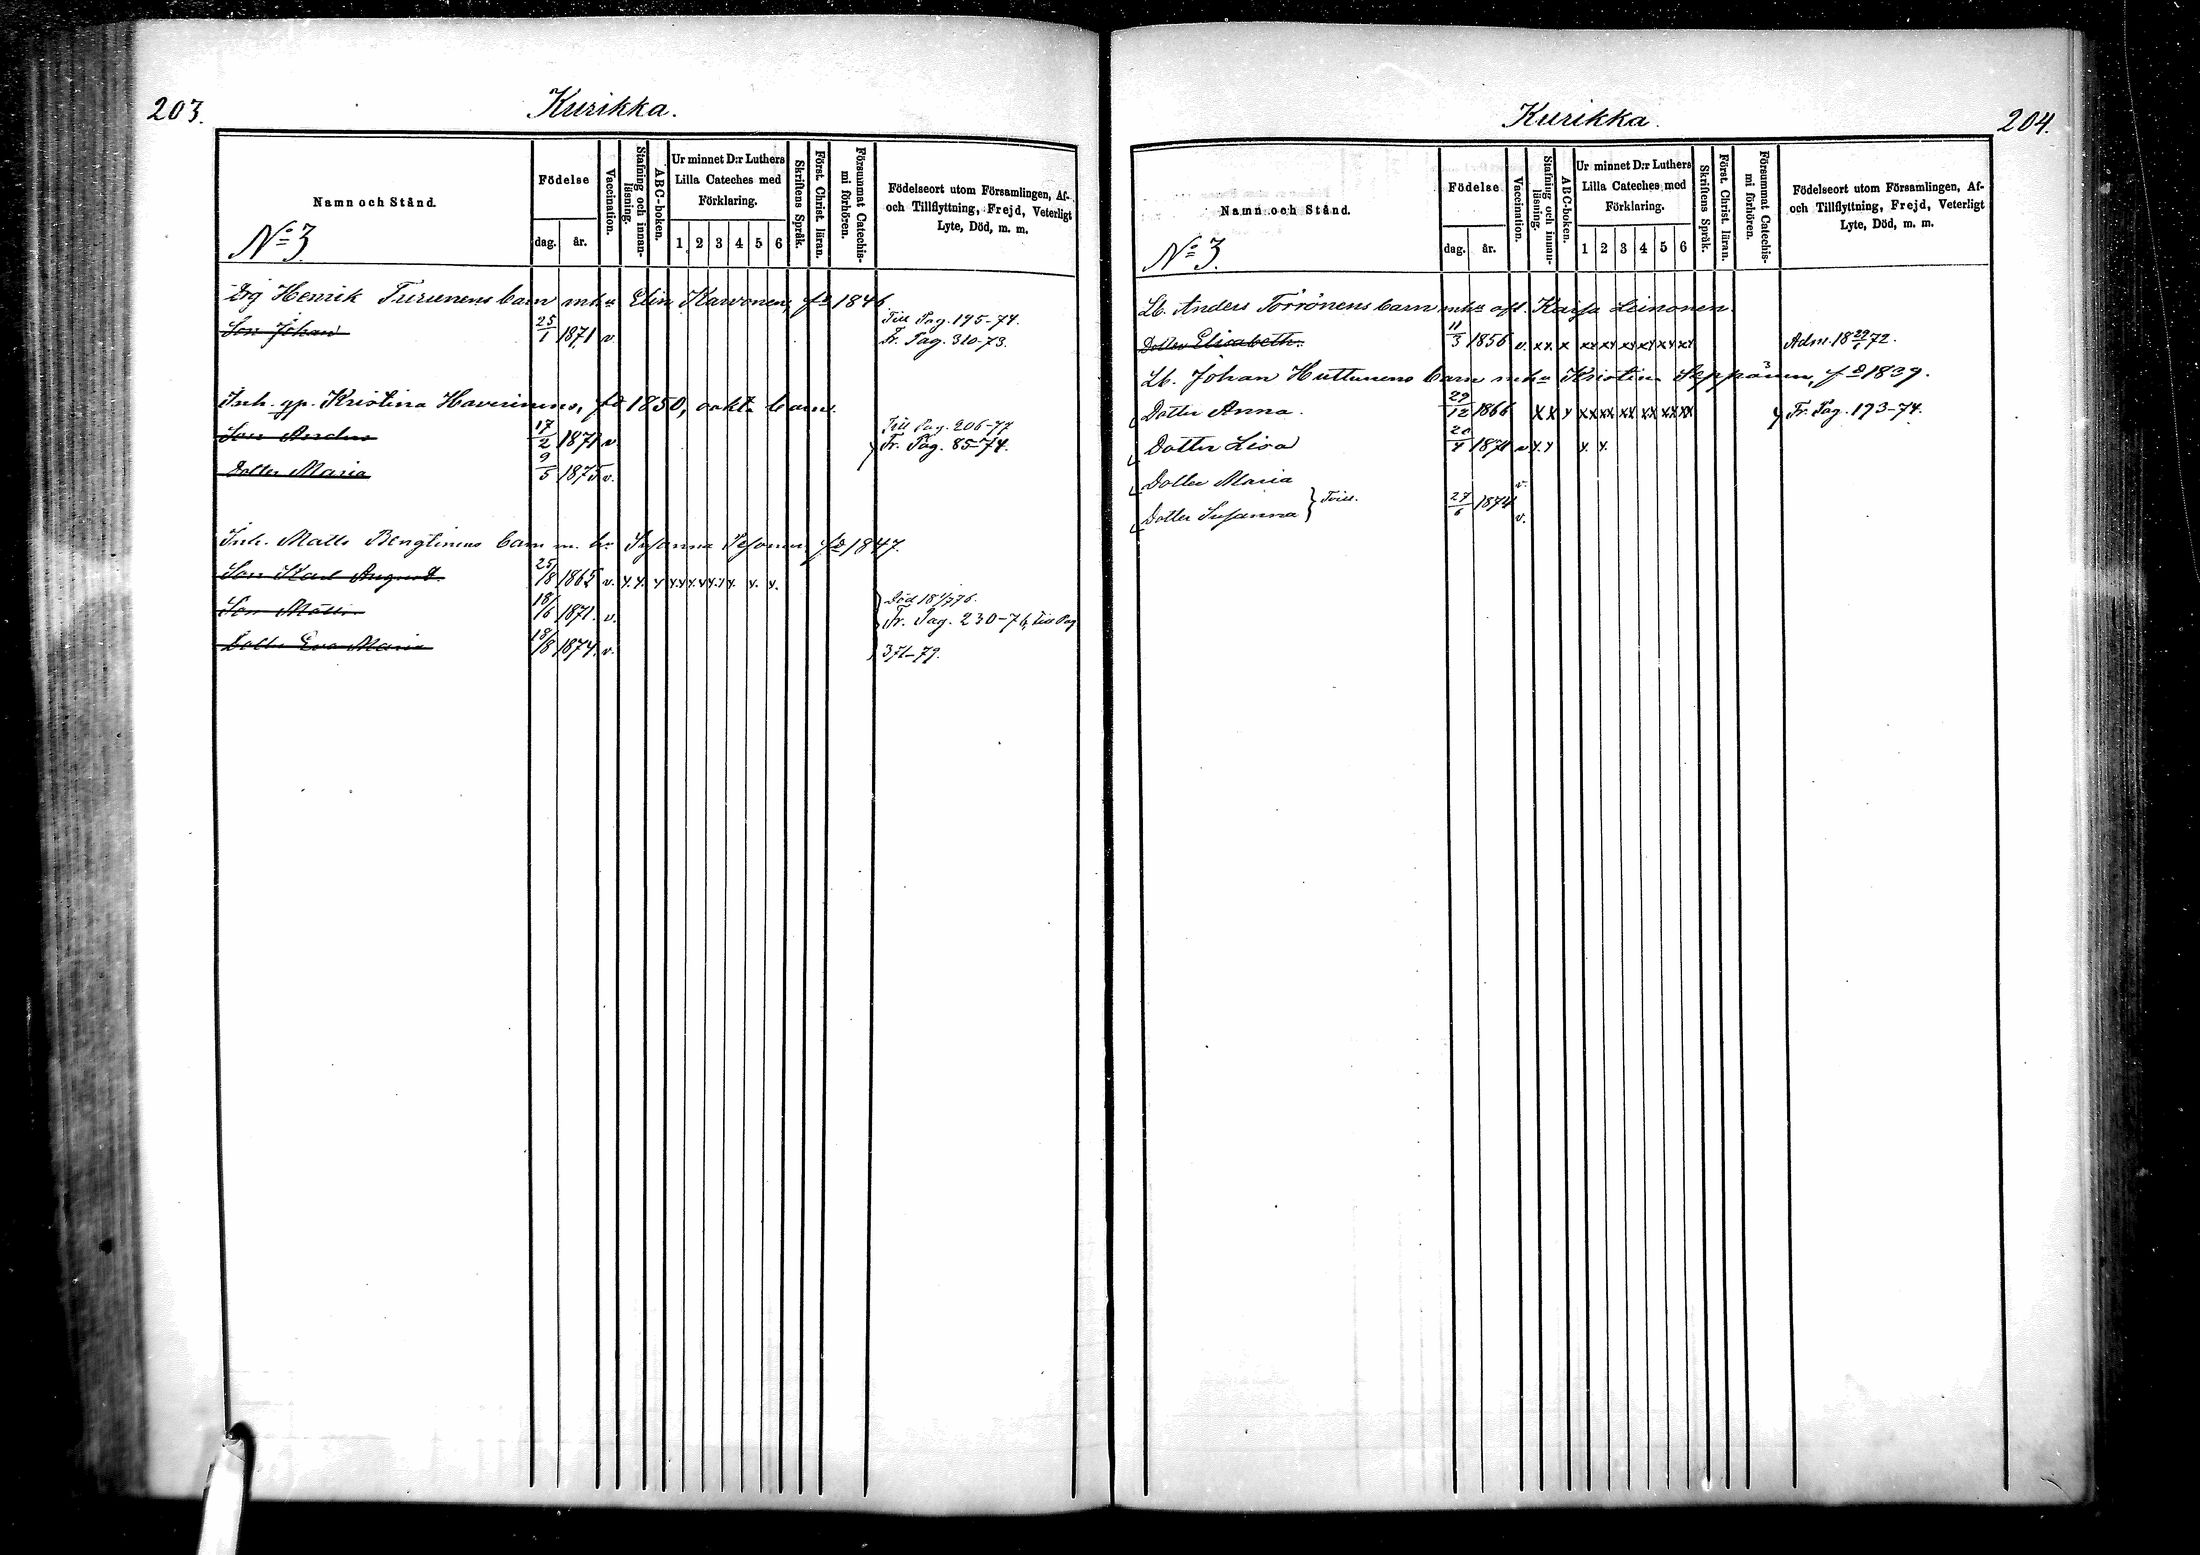 203.
Kurikka.
Namn och Stånd.
Födelse
dag.
år.
Vaccination.
Stafning och innan-
läsning.
ABC-boken.
Ur minnet D:r Luthers
Lilla Cateches med
Förklaring.
1 2 3 4 5 6
Skriftens Språk.
Först. Christ. läran.
Försummat Catechis-
mi förhören.
Födelseort utom Församlingen, Af-
och Tillflyttning, Frejd, Veterligt
Lyte, Död, m. m.
No 3
Henrik Turunens barn mhu Elin Karvonen, fd 1846
Till Pag. 195-74.
Son Johan 25/1 1871 v. Fr. Pag. 320-73.
Inh. qp. Kristina Haverinens, fd 1850, oäkta barn.
Till Pag. 206-77
Son Anders 17/2 1871 v. Fr. Pag. 85-74.
Dotter Maria 9/5 1875 v.
Inh. Matts Bengtinens barn m. hu Susanna Pesonen fd 1847.
Son Karl August 25/8 1865 v. x x x x x x x x x x x
Död 18 1/7 76.
Son Matti 18/6 1871. v. Fr. Pag. 230-76, till Pag
Dotter Eva Maria 18/8 1874. v. 371-79.
204.
Kurikka.
Namn och Stånd.
Födelse
dag.
år.
Vaccination.
Stafning och innan-
läsning.
ABC-boken.
Ur minnet D:r Luthers
Lilla Cateches med
Förklaring.
1 2 3 4 5 6
Skriftens Språk.
Först. Christ. läran.
Försummat Catechis-
mi förhören.
Födelseort utom Församlingen, Af-
och Tillflyttning, Frejd, Veterligt
Lyte, Död, m. m.
No 3.
Lb. Anders Törrönens barn mhu afl. Kaisa Leinonen.
Dotter Elisabeth. 11/3 1856 v. xx x xx xx xx xx xx xx Adm. 18 22/6 72.
Lb. Johan Huttunens barn mhu Kristina Seppänen, fd 1839.
Dotter Anna. 29/12 1866 xx x xx xx xx xx xx xx Fr. Pag. 193-74.
Dotter Lisa 20/4 1871 v x x x x
Dotter Maria v.
Dotter Susanna } Tvill. 27/6 1874 v.